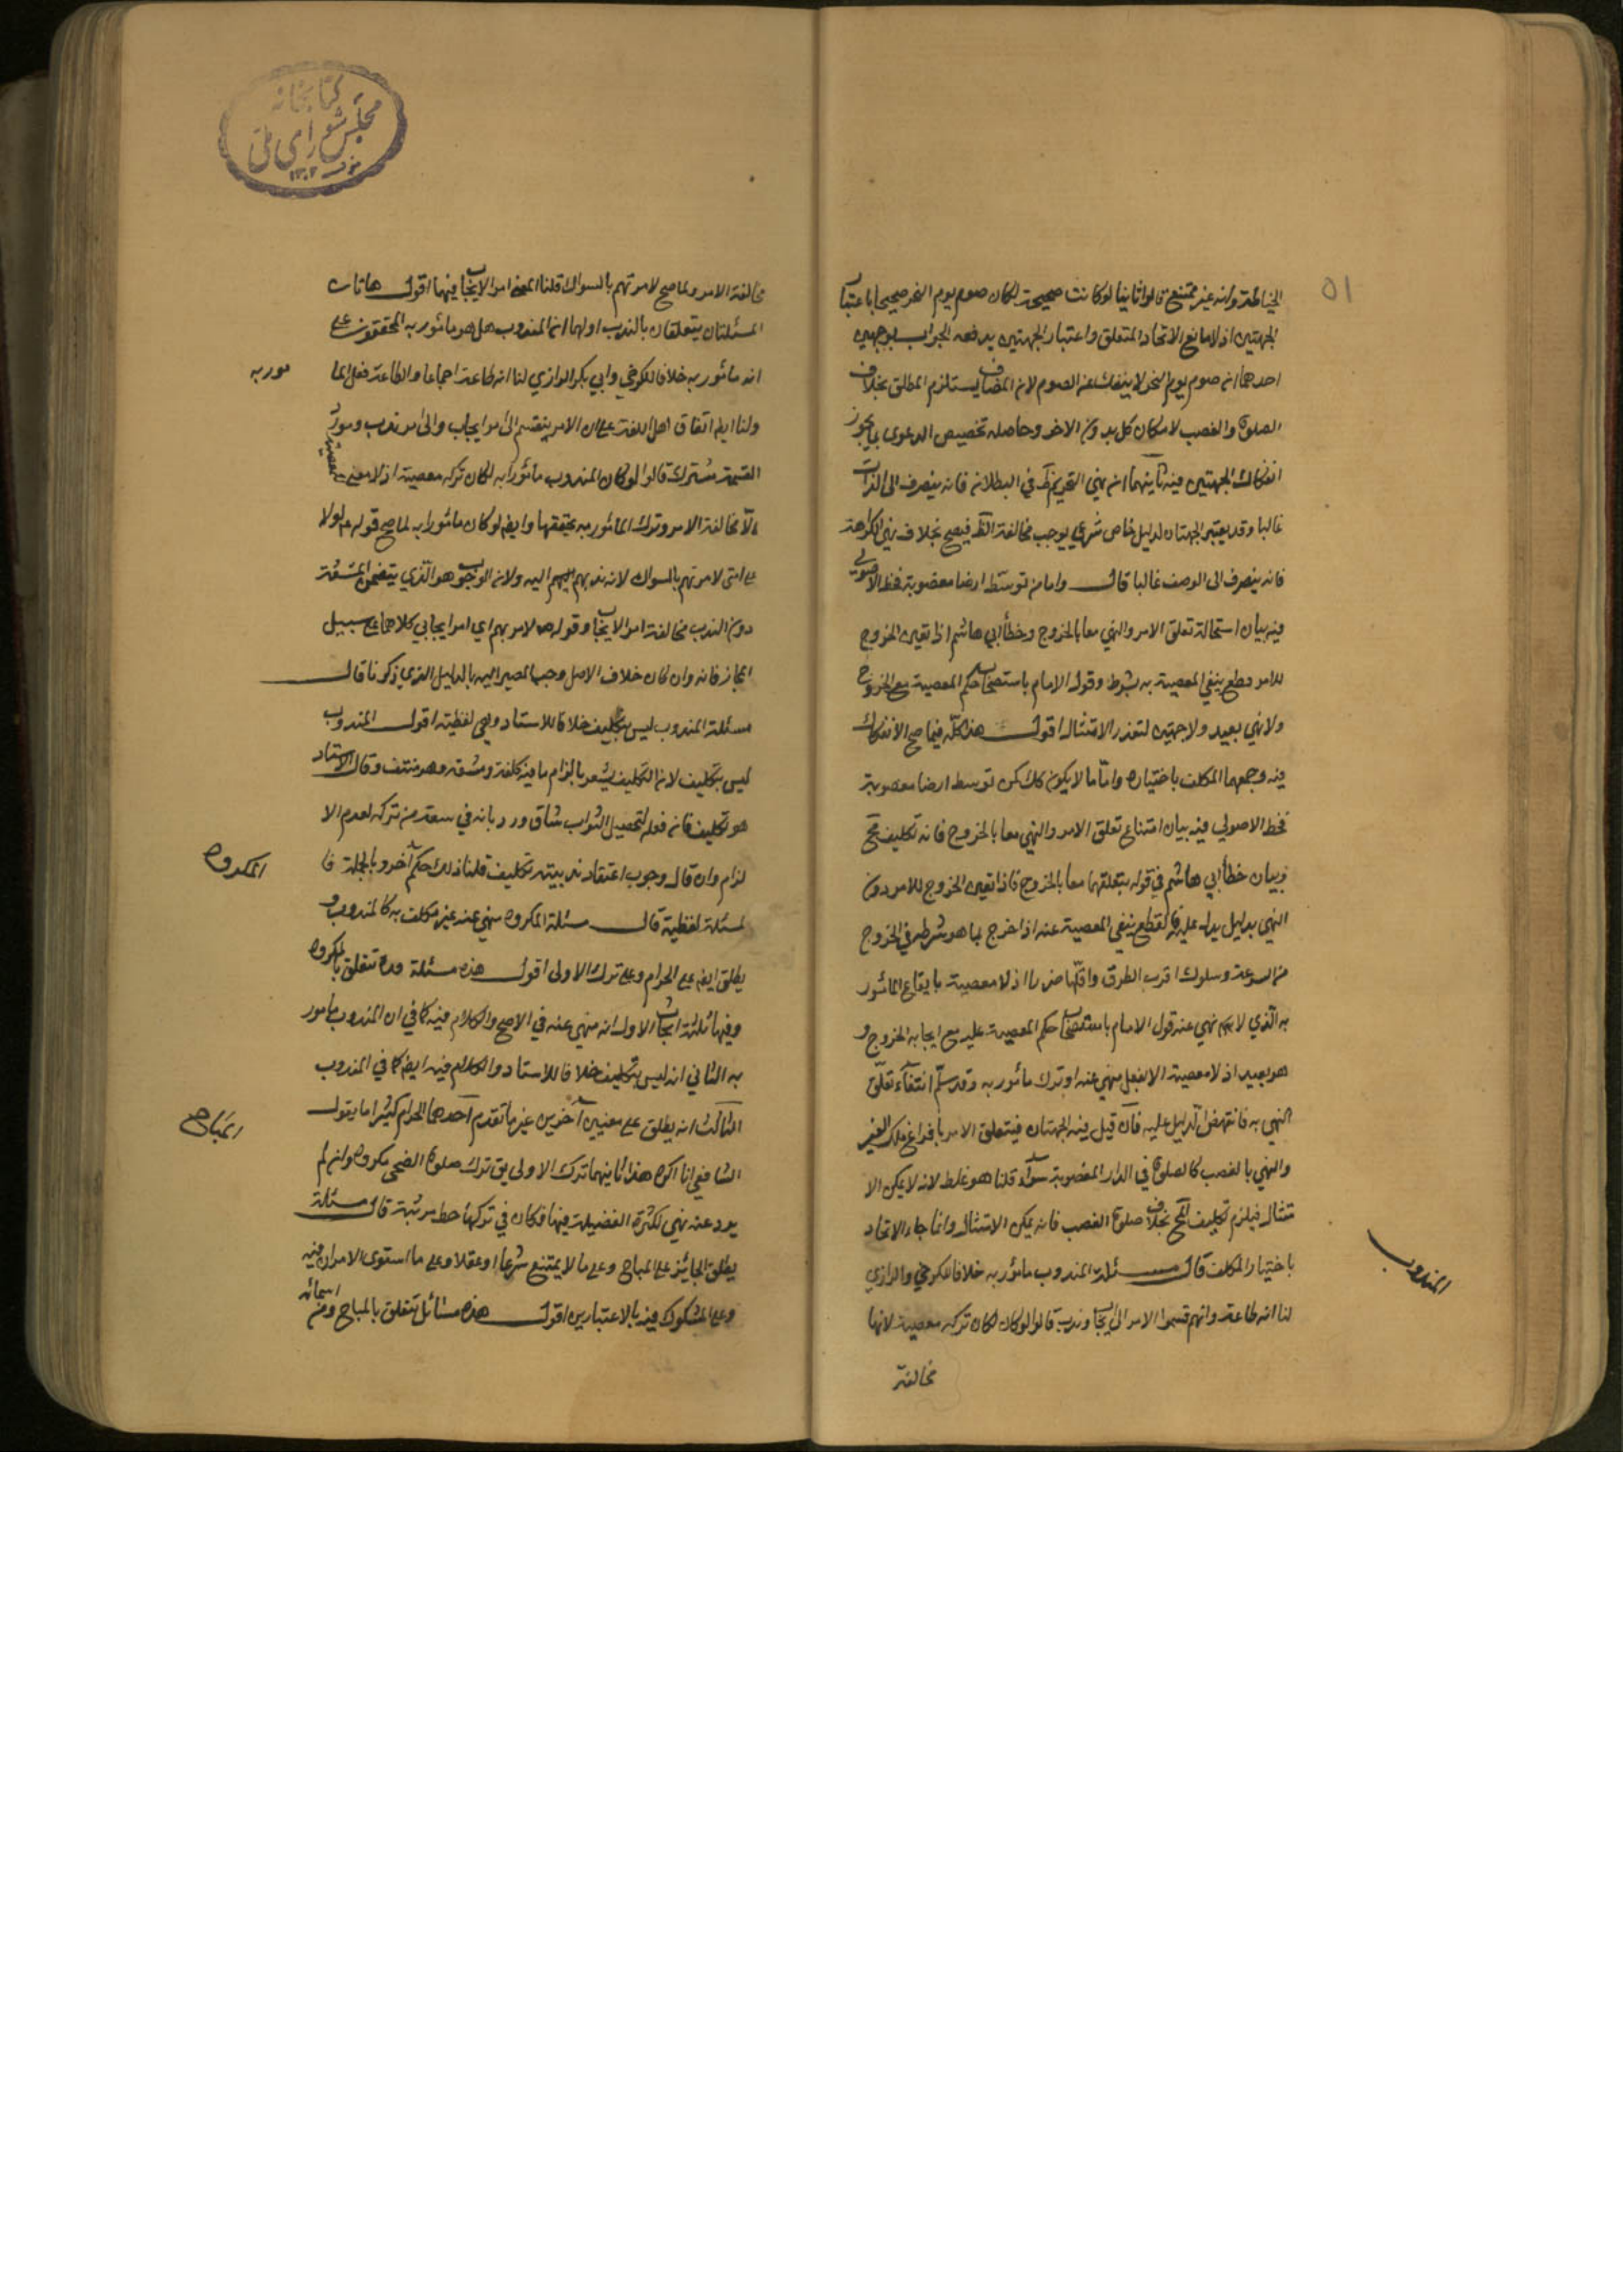 ٥١
الخياطة وانه غير ممتنع قالوا ثانيا لو كانت صحيحة لكان صوم يوم النحر صحيحا باعتبار
الجهتين اذ لا مانع الا اتحاد المتعلق واعتبار الجهتين يدفعه الجواب بوجهين
احدهما ان صوم يوم النحر لا ينفك عن الصوم لان المضاف يستلزم المطلق بخلاف
الصلوة والغصب لامكان كل بدون الاخر وحاصله تخصيص الدعوى بما يجوز
انفكاك الجهتين فيه ثانيهما ان نهي التحريم ظ في البطلان فانه ينصرف الى الذات
غالبا وقد يعتبر الجهتان لدليل خاص شرعي يوجب مخالفة الظ فيصح بخلاف نهي الكراهة
فانه ينصرف الى الوصف غالبا قال واما من توسط ارضا مغصوبة فحظ الاصولي
فيه بيان استحالة تعلق الامر والنهي معا بالخروج وخطأ ابي هاشم اذا تعين الخروج
للامر قطع بنفي المعصية به بشرطه وقول الامام باستصحاب حكم المعصية مع الخروج
ولا نهي بعيد ولا جهتين لتعذر الامتثال اقول هذا كله فيما صح الانفكاك
فيه وجمعهما المكلف باختياره واما ما لا يكون كك كمن توسط ارضا مغصوبة
فحظ الاصولي فيه بيان امتناع تعلق الامر والنهي معا بالخروج فانه تكليف مح
وبيان خطأ ابي هاشم في قوله بتعلقهما معا بالخروج فاذا تعين الخروج للامر دون
النهي بدليل يدل عليه فالقطع بنفي المعصية عنه اذا خرج بما هو شرطه في الخروج
من السرعة وسلوك اقرب الطرق واقلها ضررا اذ لا معصية بايقاع المأمور
به الذي لا نهي عنه قول الامام باستصحاب حكم المعصية عليه مع ايجابه الخروج و
هو بعيد اذ لا معصية الا بفعل منهي عنه او ترك مأمور به وقد سلم انتفاء تعلق
النهي به فانتهض الدليل عليه فان قيل فيه الجهتان فيتعلق الامر بافراغ ملك الغير
والنهي بالغصب كالصلوة في الدار المغصوبة سواء قلنا هو غلط لانه لا يمكن الا
متثال فيلزم تكليف المح بخلاف صلوة الغصب فانه يمكن الامتثال وانما جاء الاتحاد
باختيار المكلف قال مسئلة المندوب مأمور به خلافا للكرخي والرازي
المندوب
لنا انه طاعة وانهم قسموا الامر الى ايجاب وندب قالوا لو كان لكان تركه معصية لانها
مخالفة
كتابخانه
مجلس شورای ملی
١٣٠٢
مخالفة الامر ولما صح لامرتهم بالسواك قلنا المعنى امر الايجاب فيهما اقول هاتان
المسئلتان يتعلقان بالندب اولهما ان المندوب هل هو مأمور به المحققون على
انه مأمور به خلافا للكرخي وابي بكر الرازي لنا انه طاعة اجماعا والطاعة فعل الما
مور به
ولنا ايض اتفاق اهل اللغة على ان الامر ينقسم الى امر ايجاب والى امر ندب ومورد
القسمة مشترك قالوا لو كان المندوب مأمورا به لكان تركه معصية اذ لا معنى للمعصية
الا مخالفة الامر وترك المأمور به يحققها وايض لو كان مأمورا به لما صح قوله ع لولا
على امتي لامرتهم بالسواك لانه ندبهم اليه ولان الوجوب هو الذي يتضمن المشقة
دون الندب مخالفة امر الايجاب وقوله ص لامرتهم اي امر ايجابي كلاهما على سبيل
المجاز فانه وان كان خلاف الاصل وجب المصير اليه بالدليل الذي ذكرنا قال
مسئلة المندوب ليس بتكليف خلافا للاستاد وهي لفظية اقول المندوب
ليس بتكليف لان التكليف يشعر بالزام ما فيه كلفة ومشقة وهو منتف وقال الاستاد
هو تكليف فان فعله لتحصيل الثواب شاق ورد بانه في سعة من تركه لعدم الا
لزام وان قال وجوب اعتقاد ندبيته تكليف قلنا ذلك حكم آخر وبالجملة فا
المكروه
لمسئلة لفظية قال مسئلة المكروه منهي عنه غير مكلف به كالمندوب و
يطلق ايض على الحرام وعلى ترك الاولى اقول هذه مسئلة تتعلق بالمكروه
وفيها ثلثة ابحاث الاول انه منهي عنه في الاصح والكلام فيه كما في ان المندوب مأمور
به الثاني انه ليس بتكليف خلافا للاستاد والكلام فيه ايض كما في المندوب
الثالث انه يطلق على معنيين آخرين غير ما تقدم احدهما الحرام كثيرا ما يقول
المباح
الشافعي انا اكره هذا ثانيهما ترك الاولى يق ترك صلوة الضحى مكروه وان لم
يرد عنه نهي لكثرة الفضيلة فيها فكان في تركها حط مرتبة قال مسئلة
يطلق الجائز على المباح وعلى ما لا يمتنع شرعا او عقلا وعلى ما استوى الامران فيه
وعلى المشكوك فيه بالاعتبارين اقول هذه مسائل تتعلق بالمباح ومن اسمائه